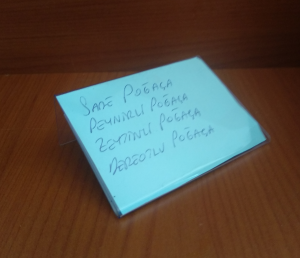 SADE POĞAÇA
PEYNİRLİ POĞAÇA
ZEYTİNLİ POĞAÇA
DEREOTLU POĞAÇA